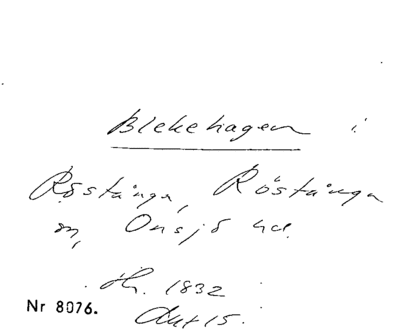 Blekehagen i
Röstånga, Röstånga
sn, Onsjö hd.
Hr. 1832
Akt 15.
Nr 8076.